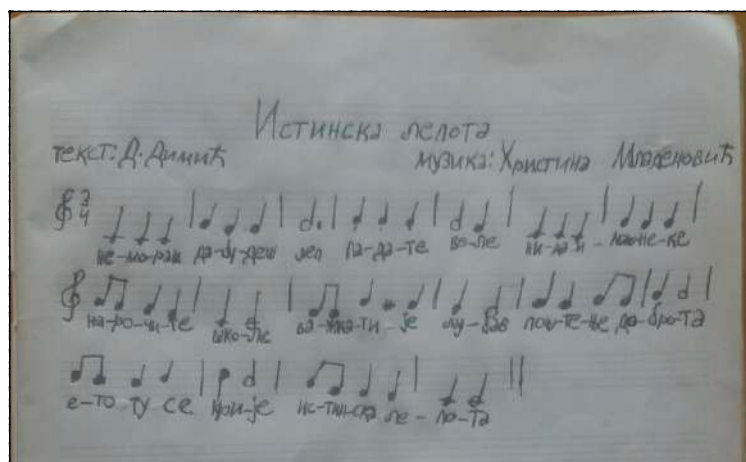 Истинска лепота
текст: Д. Димић музика: Христина Младеновић
3 4
не-мо-раш да-бу-деш леп па-да-те во-ле ни-да-и-маш не-ке
на-ро-чи-те шко-ле ва-жна ти је љу-бав пош-те-ње до-бро-та
е-то ту се кри-је ис-тин-ска ле-по-та